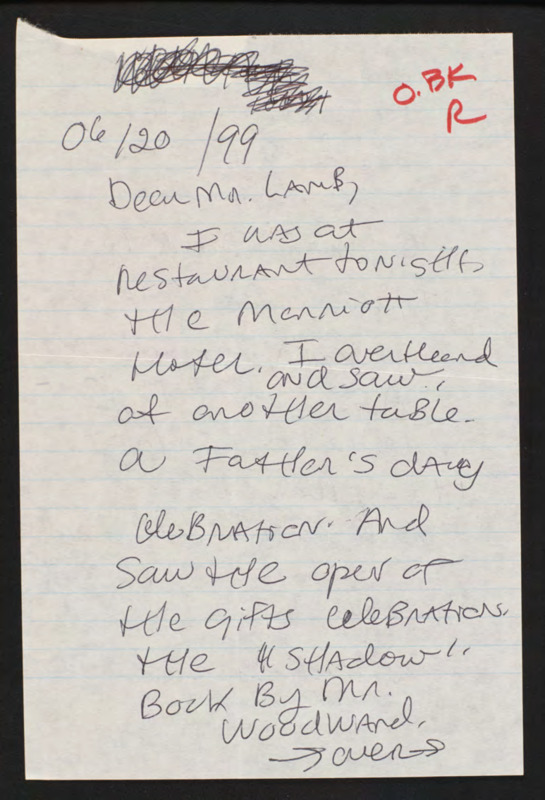 O.BK
R
06/20/99
Dear Mr. LAMB,
I was at
restaurant tonight,
the Marriott
Hotel. I overheard
and saw,
at another table.
a Father's day
celeBration. And
Saw the open of
the gifts celeBration.
the "SHAdow".
Book By Mr.
WOODWARD.
→ over →